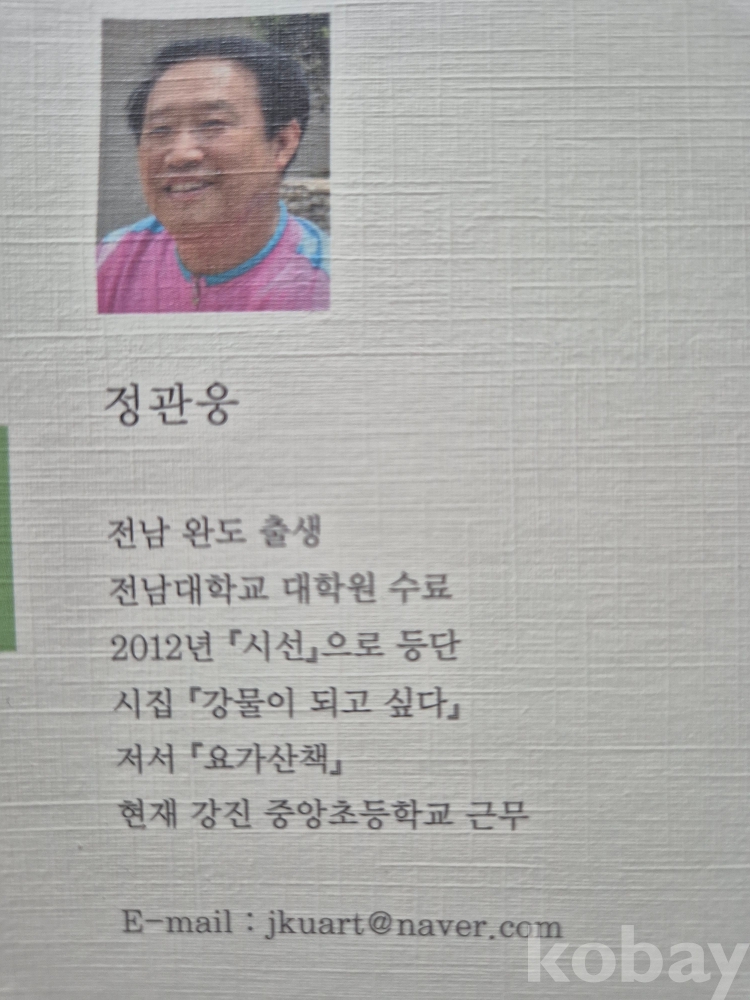 정관웅
전남 완도 출생
전남대학교 대학원 수료
2012년 『시선』으로 등단
시집 『강물이 되고 싶다』
저서 『요가산책』
현재 강진 중앙초등학교 근무
E-mail : jkuart@naver.com
kobay